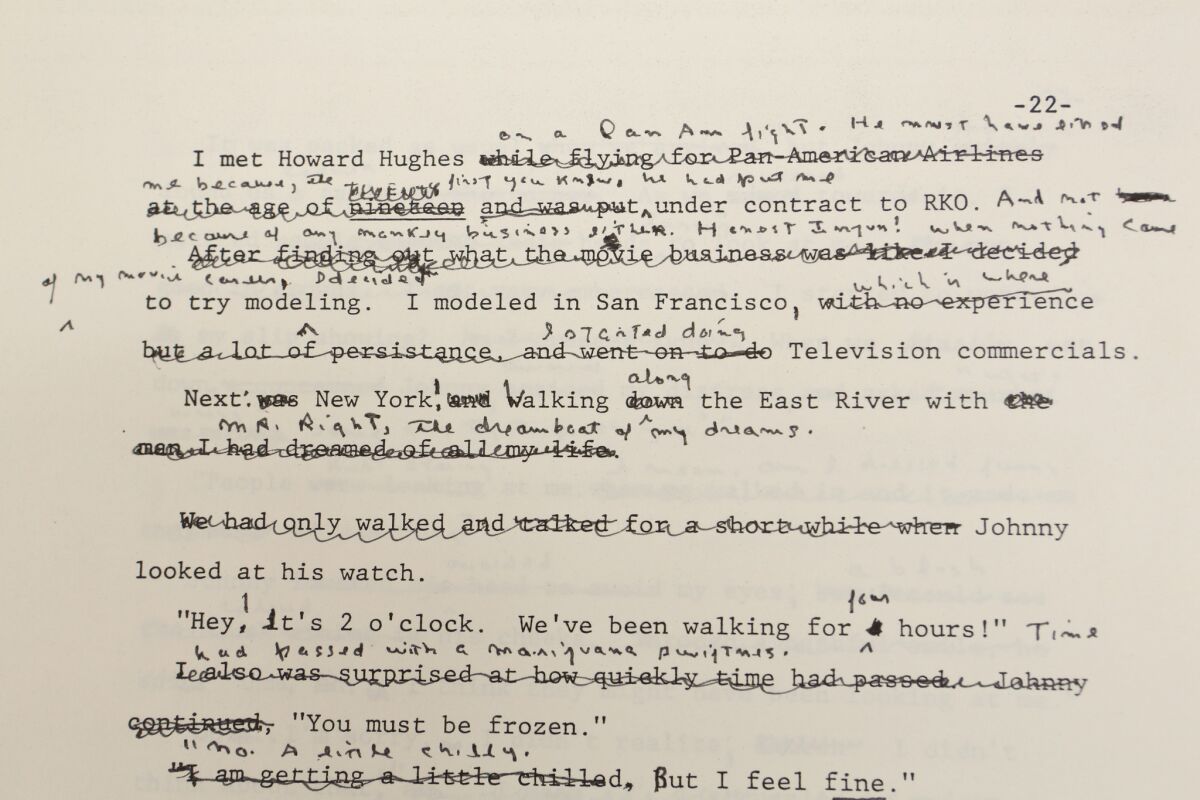 -22-
on a Pan Am flight. He must have liked
I met Howard Hughes while flying for Pan-American Airlines
me because, the first you know, he had put me
at the age of nineteen and was put under contract to RKO. And not
because of any monkey business either. Honest Injun! When nothing came
After finding out what the movie business was like I decided
of my movie career, I decided
to try modeling. I modeled in San Francisco, with no experience
which is where
but a lot of persistance, and went on to do Television commercials.
I started doing
Next was New York! and Walking down the East River with the
along
Mr. Right, the dreamboat of my dreams.
man I had dreamed of all my life.
We had only walked and talked for a short while when Johnny
looked at his watch.
"Hey! It's 2 o'clock. We've been walking for 4 hours!" Time
four
had passed with a mariquana swiftness.
I also was surprised at how quickly time had passed. Johnny
continued, "You must be frozen."
"No. A little chilly.
"I am getting a little chilled, But I feel fine."